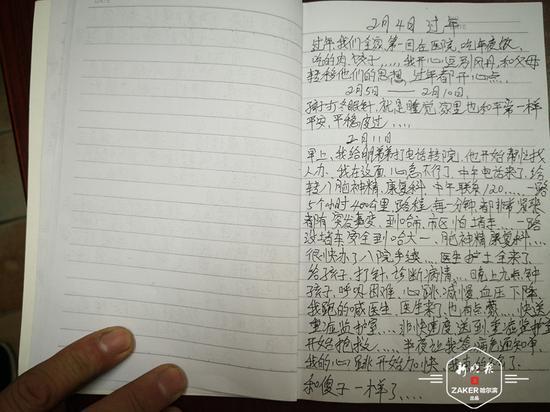 2月4日 过年
过年,我们全家第一回在医院,吃年夜饭,
吃的肉饺子,....,我开心逗引风丹,和父母
轻松他们的思想,过年都开心点.
2月5日——2月10日.
孩打冬眠针,就是睡觉,家里也和平常一样
平安,平稳度过....
2月11日
早上,我给明弟弟打电话转院,他开始帮忙找
人办,我在这面心急不行了,中午电话来了,给
转八脑神精,康复科,中午联系120.....一路
5个小时400公里路程,每一分钟都非常紧张
都有突发事变,到哈市,市区怕堵车....一路
没堵车安全到哈大一、脑神精康复科...
很快办了八院手续....医生护士全来了
给孩子,打针,诊断病情....晚上九点钟
孩子,呼吸困难,心跳减慢,血压下降
我跑的喊医生,医生来了,也有点蒙....快送
重症监护室....非快速度送到重症监护室
开始抢救....半夜让我签病危通知单
我的心跳开始加快
和傻子一样了....
新晚报
ZAKER哈尔滨
出品